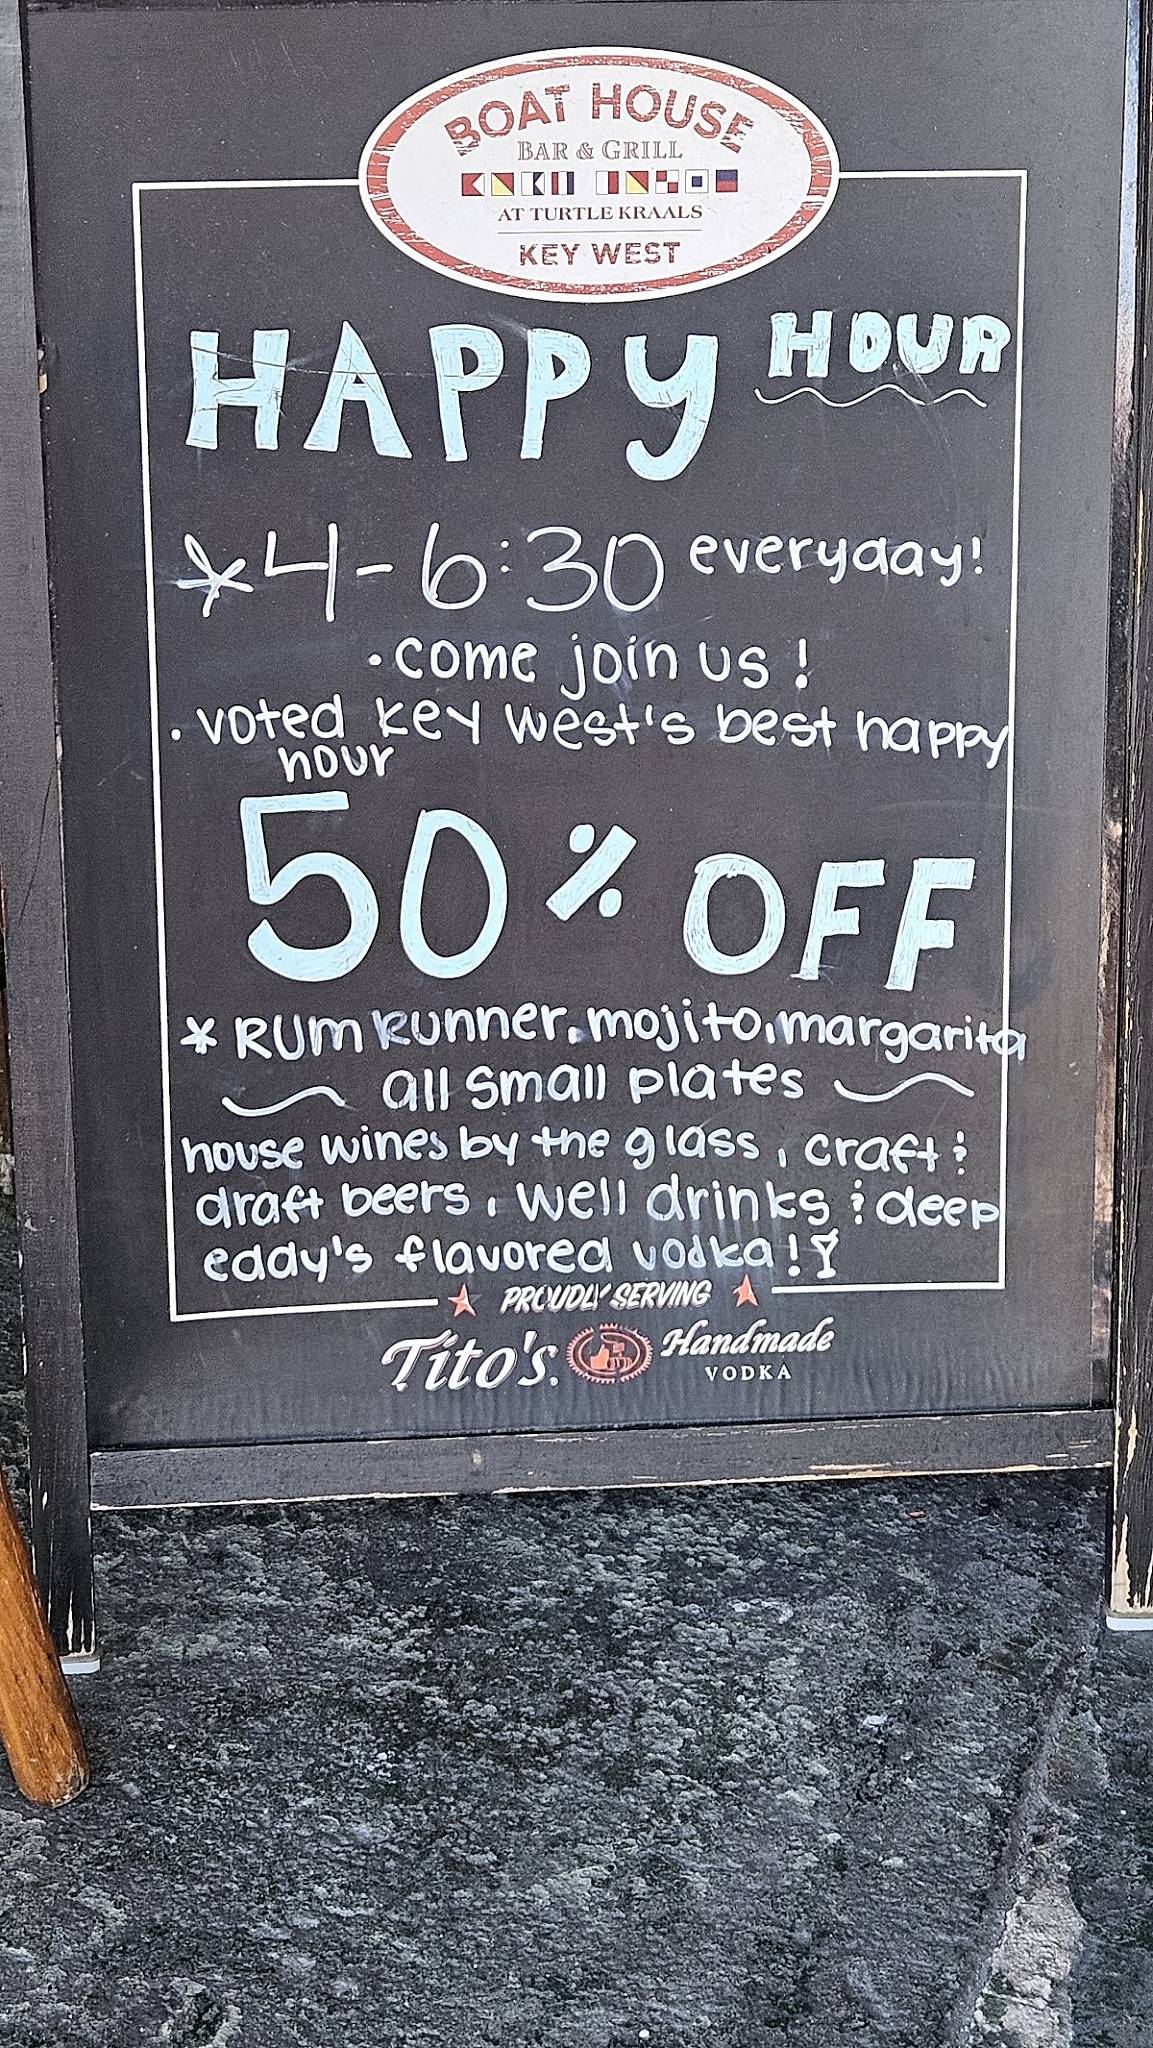 BOAT HOUSE
BAR & GRILL
AT TURTLE KRAALS
KEY WEST
HAPPY HOUR
*4-6:30 everyday!
· come join us!
· voted Key West's best happy
hour
50% OFF
* RUM RUNNER, mojito, margarita
~ all small plates ~
house wines by the glass, craft &
draft beers, well drinks & deep
eddy's flavored vodka!
★ PROUDLY SERVING ★
Tito's. Handmade
VODKA